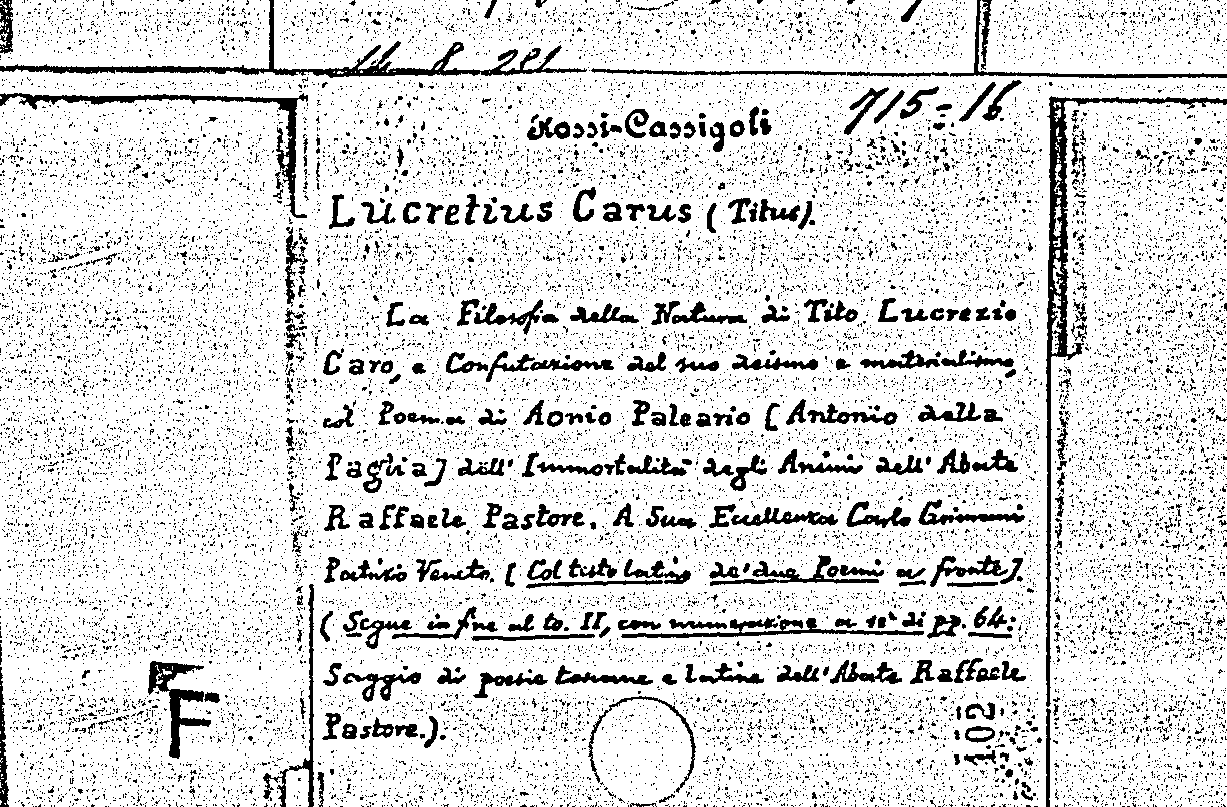 14 8 281
Rossi-Cassigoli
715-16
Lucretius Carus (Titus).
La Filosofia della Natura di Tito Lucrezio
Caro, e Confutazione del suo deismo e materialismo,
col Poema di Aonio Paleario [Antonio della
Paglia] dell' Immortalità degli Animi dell' Abate
Raffaele Pastore. A Sua Eccellenza Carlo Grimani
Patrizio Veneto. [Col testo latino de' due Poemi a fronte].
(Segue in fine al to. II, con numerazione a sè di pp. 64:
Saggio di poesie toscane e latine dell' Abate Raffaele
Pastore.).
102
F